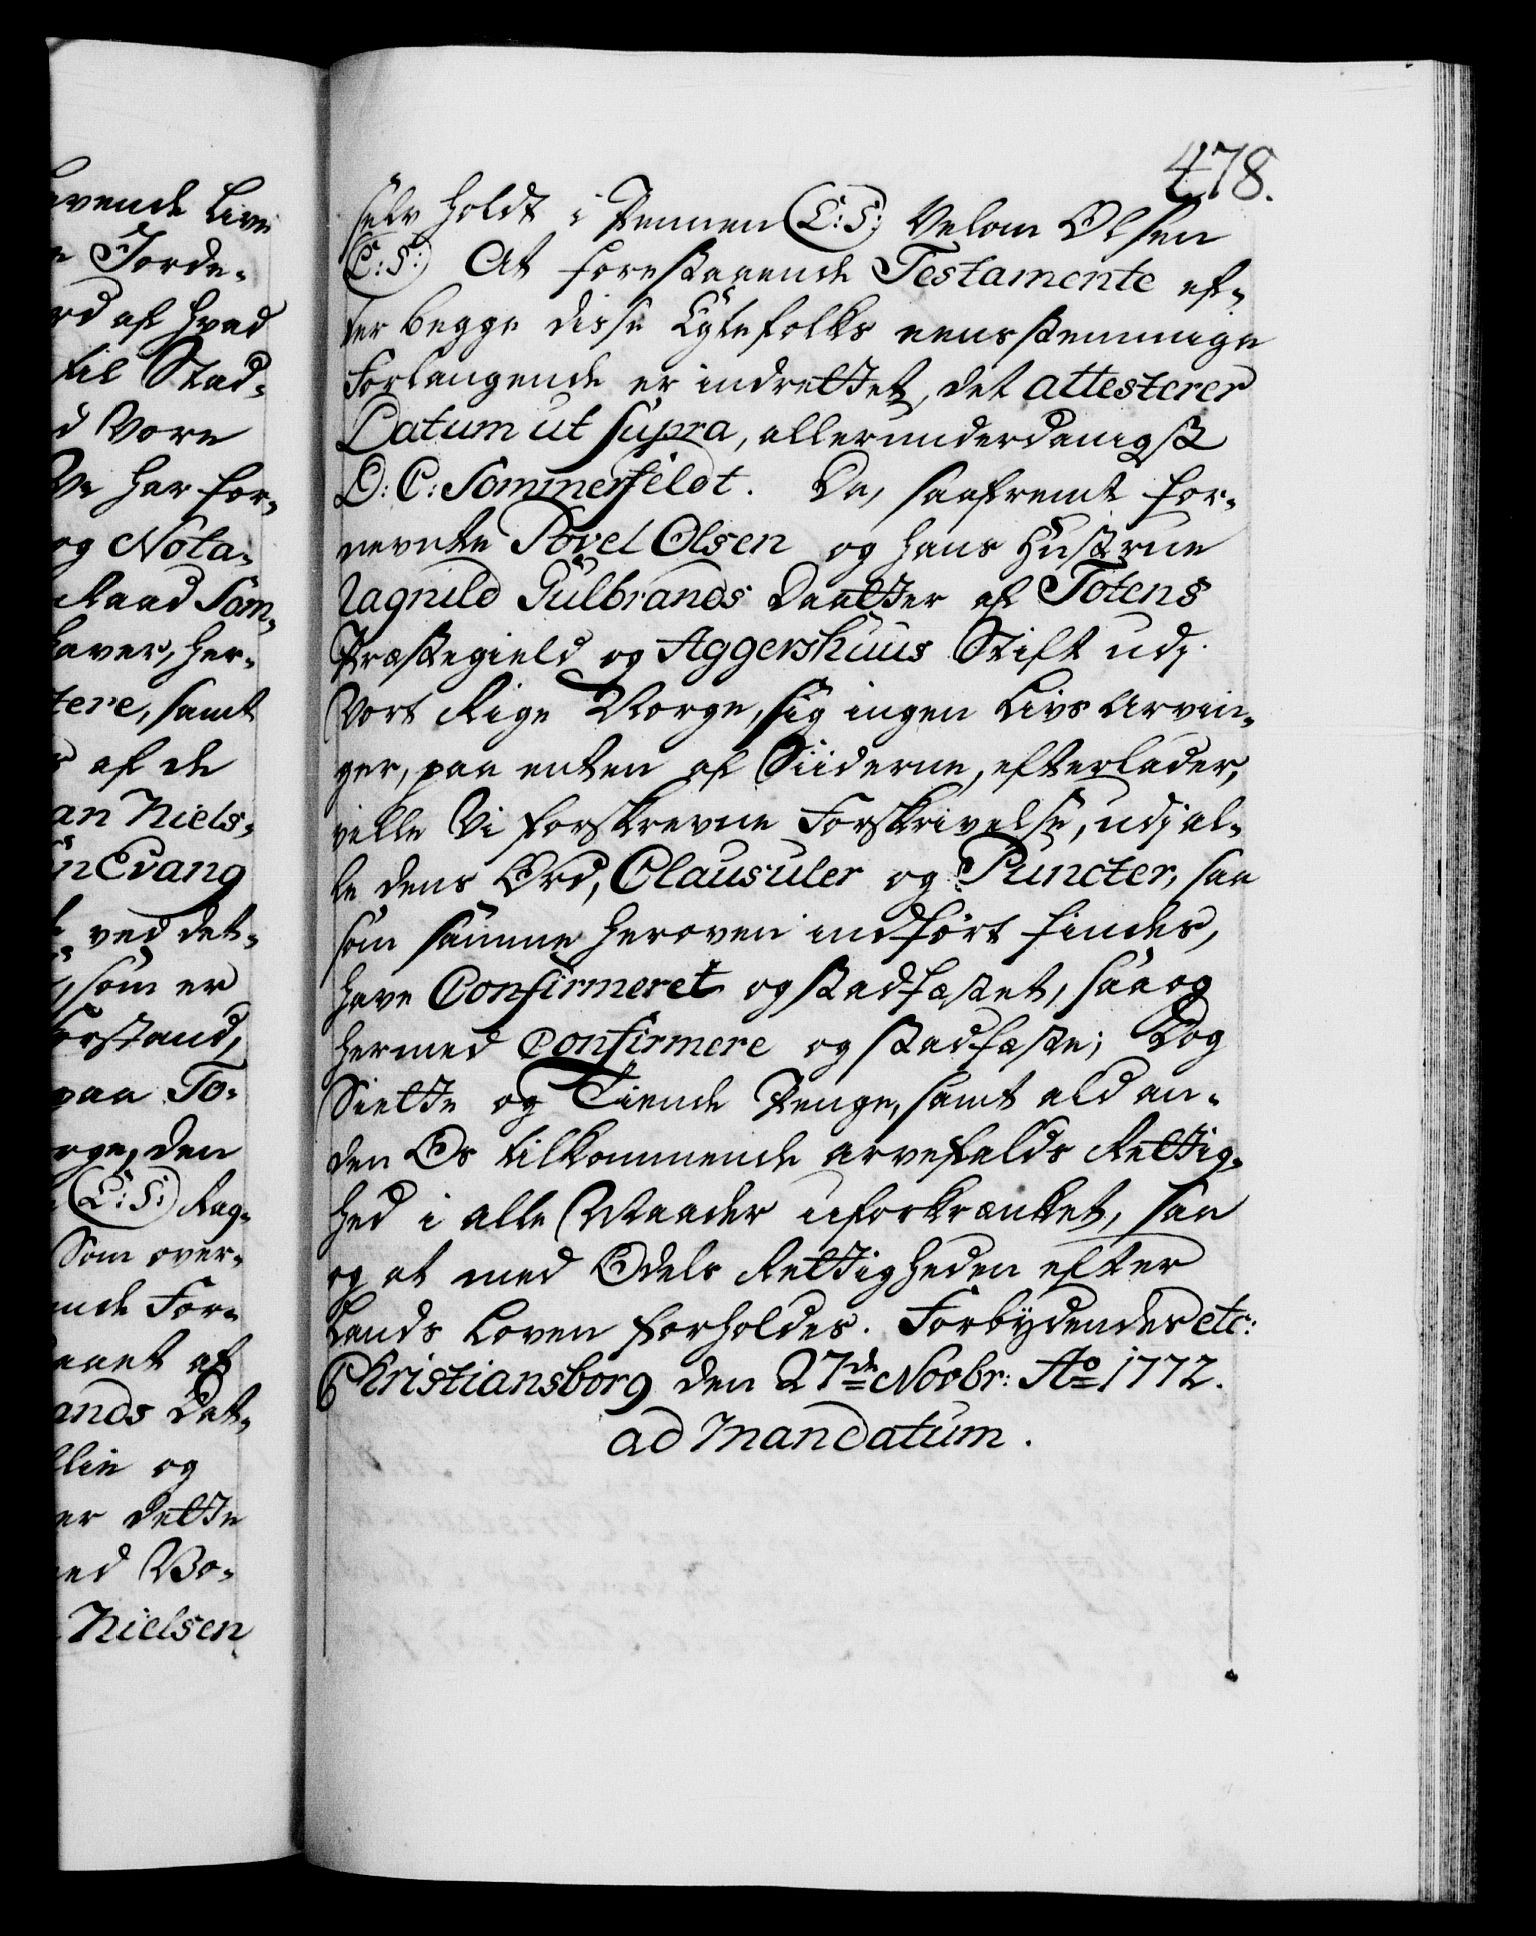 evende Livs
e Jorde-
rd af hvad
til Stad-
d Vore
Ve har for-
og Nota-
Raad Som-
haver, her-
tere, samt
af de
an Niels-
Evang
ved det-
som er
orstand,
paa To-
orge, den
(L:S:) Rag-
Som over-
nde For-
aaet af
ands Dat-
llie og
er dette
ed Bo-
Nielsen
478.
selv holdt i Pennen (L:S:) Velom Olsen
(L:S:) At forestaaende Testamente ef-
ter begge disse Egtefolks eensstemmige
Forlangende er indrettet, det attesterer
Datum ut supra, allerunderdanigst
O: C: Sommerfeldt. Da, saafremt for-
nevnte Povel Olsen og hans Hustrue
Ragnild Gulbrands Daatter af Totens
Præstegield og Aggershuus Stift udj
Vort Rige Norge, sig ingen Livs Arvin-
ger, paa enten af Siiderne, efterlader,
ville Vi forskrevne Forskrivelse, udj al-
le dens Ord, Clausuler og Puncter, saa
som samme heroven indført findes,
have Confirmeret og stadfæstet, saa og
hermed Confirmere og stadfæste; Dog
Siette og Tiende Penge, samt ald an-
den Os tilkommende arvefalds Rettig-
hed i alle Maader uforkrænket, saa
og at med Odels Rettigheden efter
Lands Loven forholdes. Forbydendes etc:
Christiansborg den 27de Novbr: Ao 1772.
ad Mandatum.